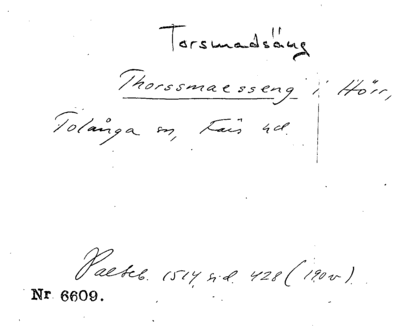 Torsmadsäng
Thorssmaesseng i Hörr,
Tolånga sn, Färs hd.
Palteb. 1514, sid. 428 (190v).
Nr 6609.